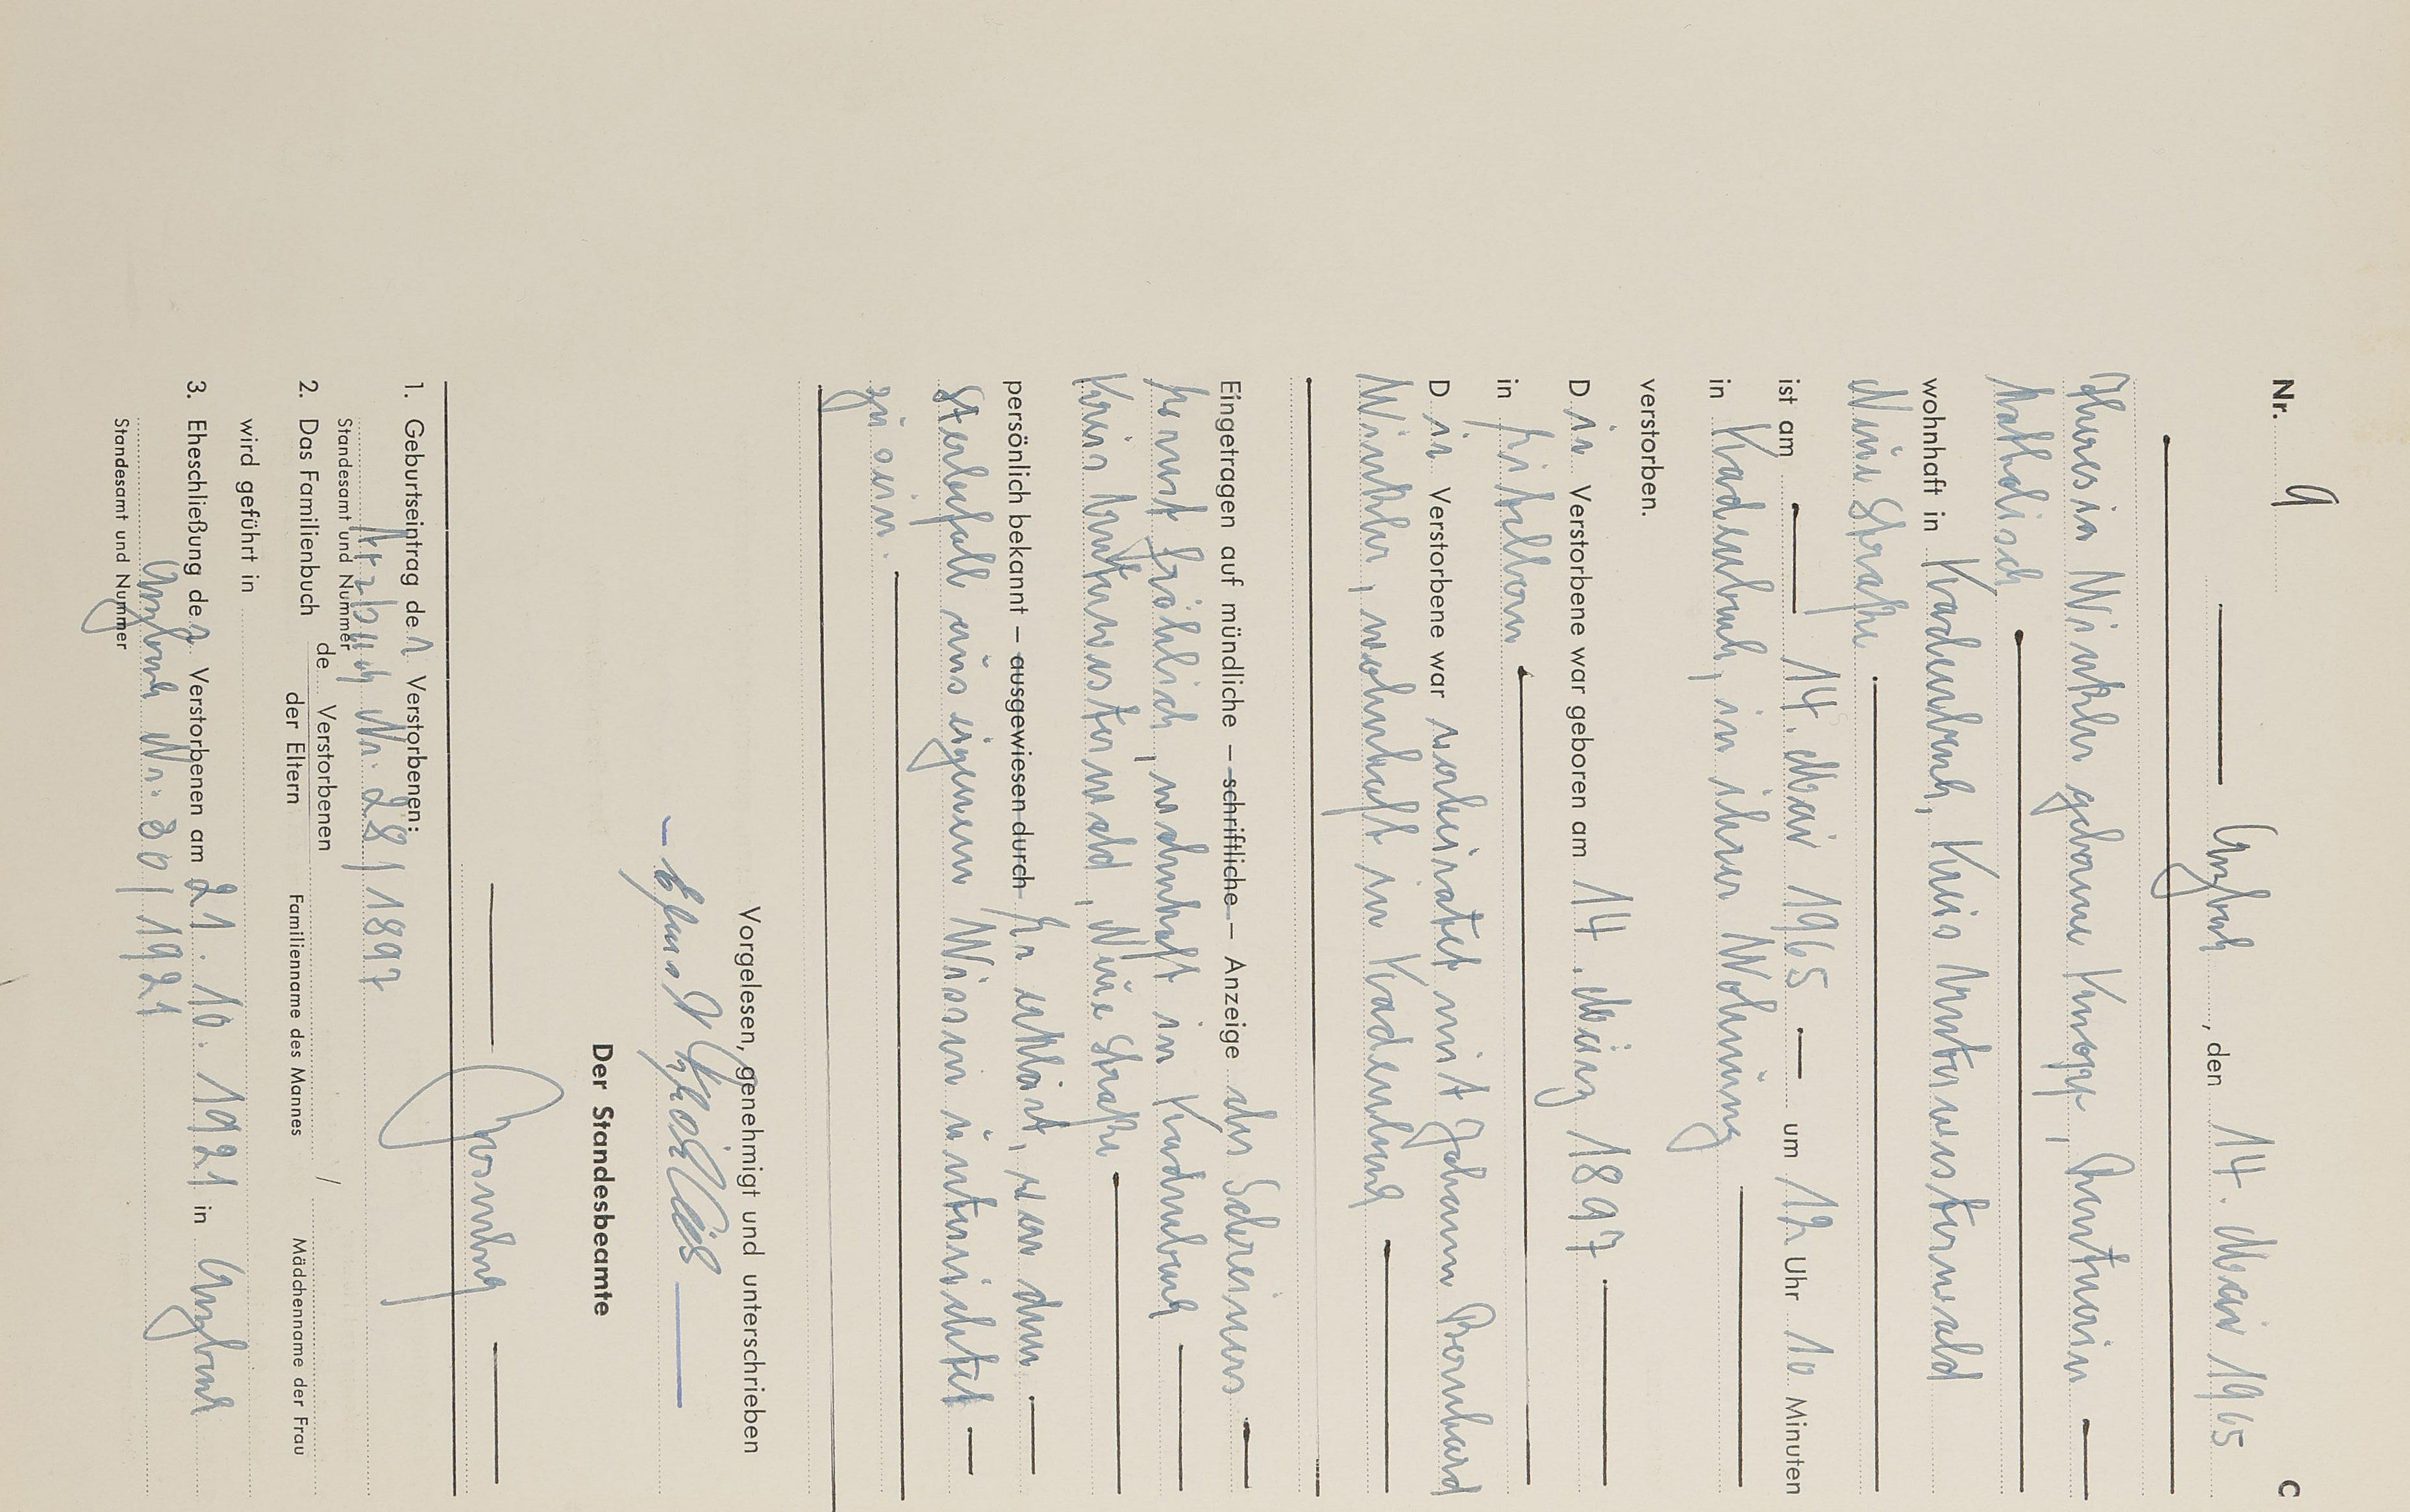 Nr. 9 C
Arzbach, den 14. Mai 1965
Theresia Winkler geborene Knopp, Rentnerin
katholisch
wohnhaft in Kadenbach, Kreis Unterwesterwald
Neue Straße
ist am 14. Mai 1965 um 12 Uhr 10 Minuten
in Kadenbach, in ihrer Wohnung
verstorben.
Die Verstorbene war geboren am 14. März 1897
in
Die Verstorbene war verheiratet mit Johann Bernhard
Winkler, wohnhaft in Kadenbach
Eingetragen auf mündliche – schriftliche – Anzeige des Schreiners
Ernst Fröhlich, wohnhaft in Kadenbach
Kreis Unterwesterwald, Neue Straße
persönlich bekannt – ausgewiesen durch Er erklärt, von dem
Sterbefall aus eigenem Wissen unterrichtet
zu sein.
Vorgelesen, genehmigt und unterschrieben
Ernst Fröhlich
Der Standesbeamte
1. Geburtseintrag der Verstorbenen:
Arzbach Nr. 28/1897
Standesamt und Nummer
2. Das Familienbuch de Verstorbenen / der Eltern
Familienname des Mannes / Mädchenname der Frau
wird geführt in
3. Eheschließung der Verstorbenen am 21. 10. 1921 in Arzbach
Arzbach Nr. 30/1921
Standesamt und Nummer